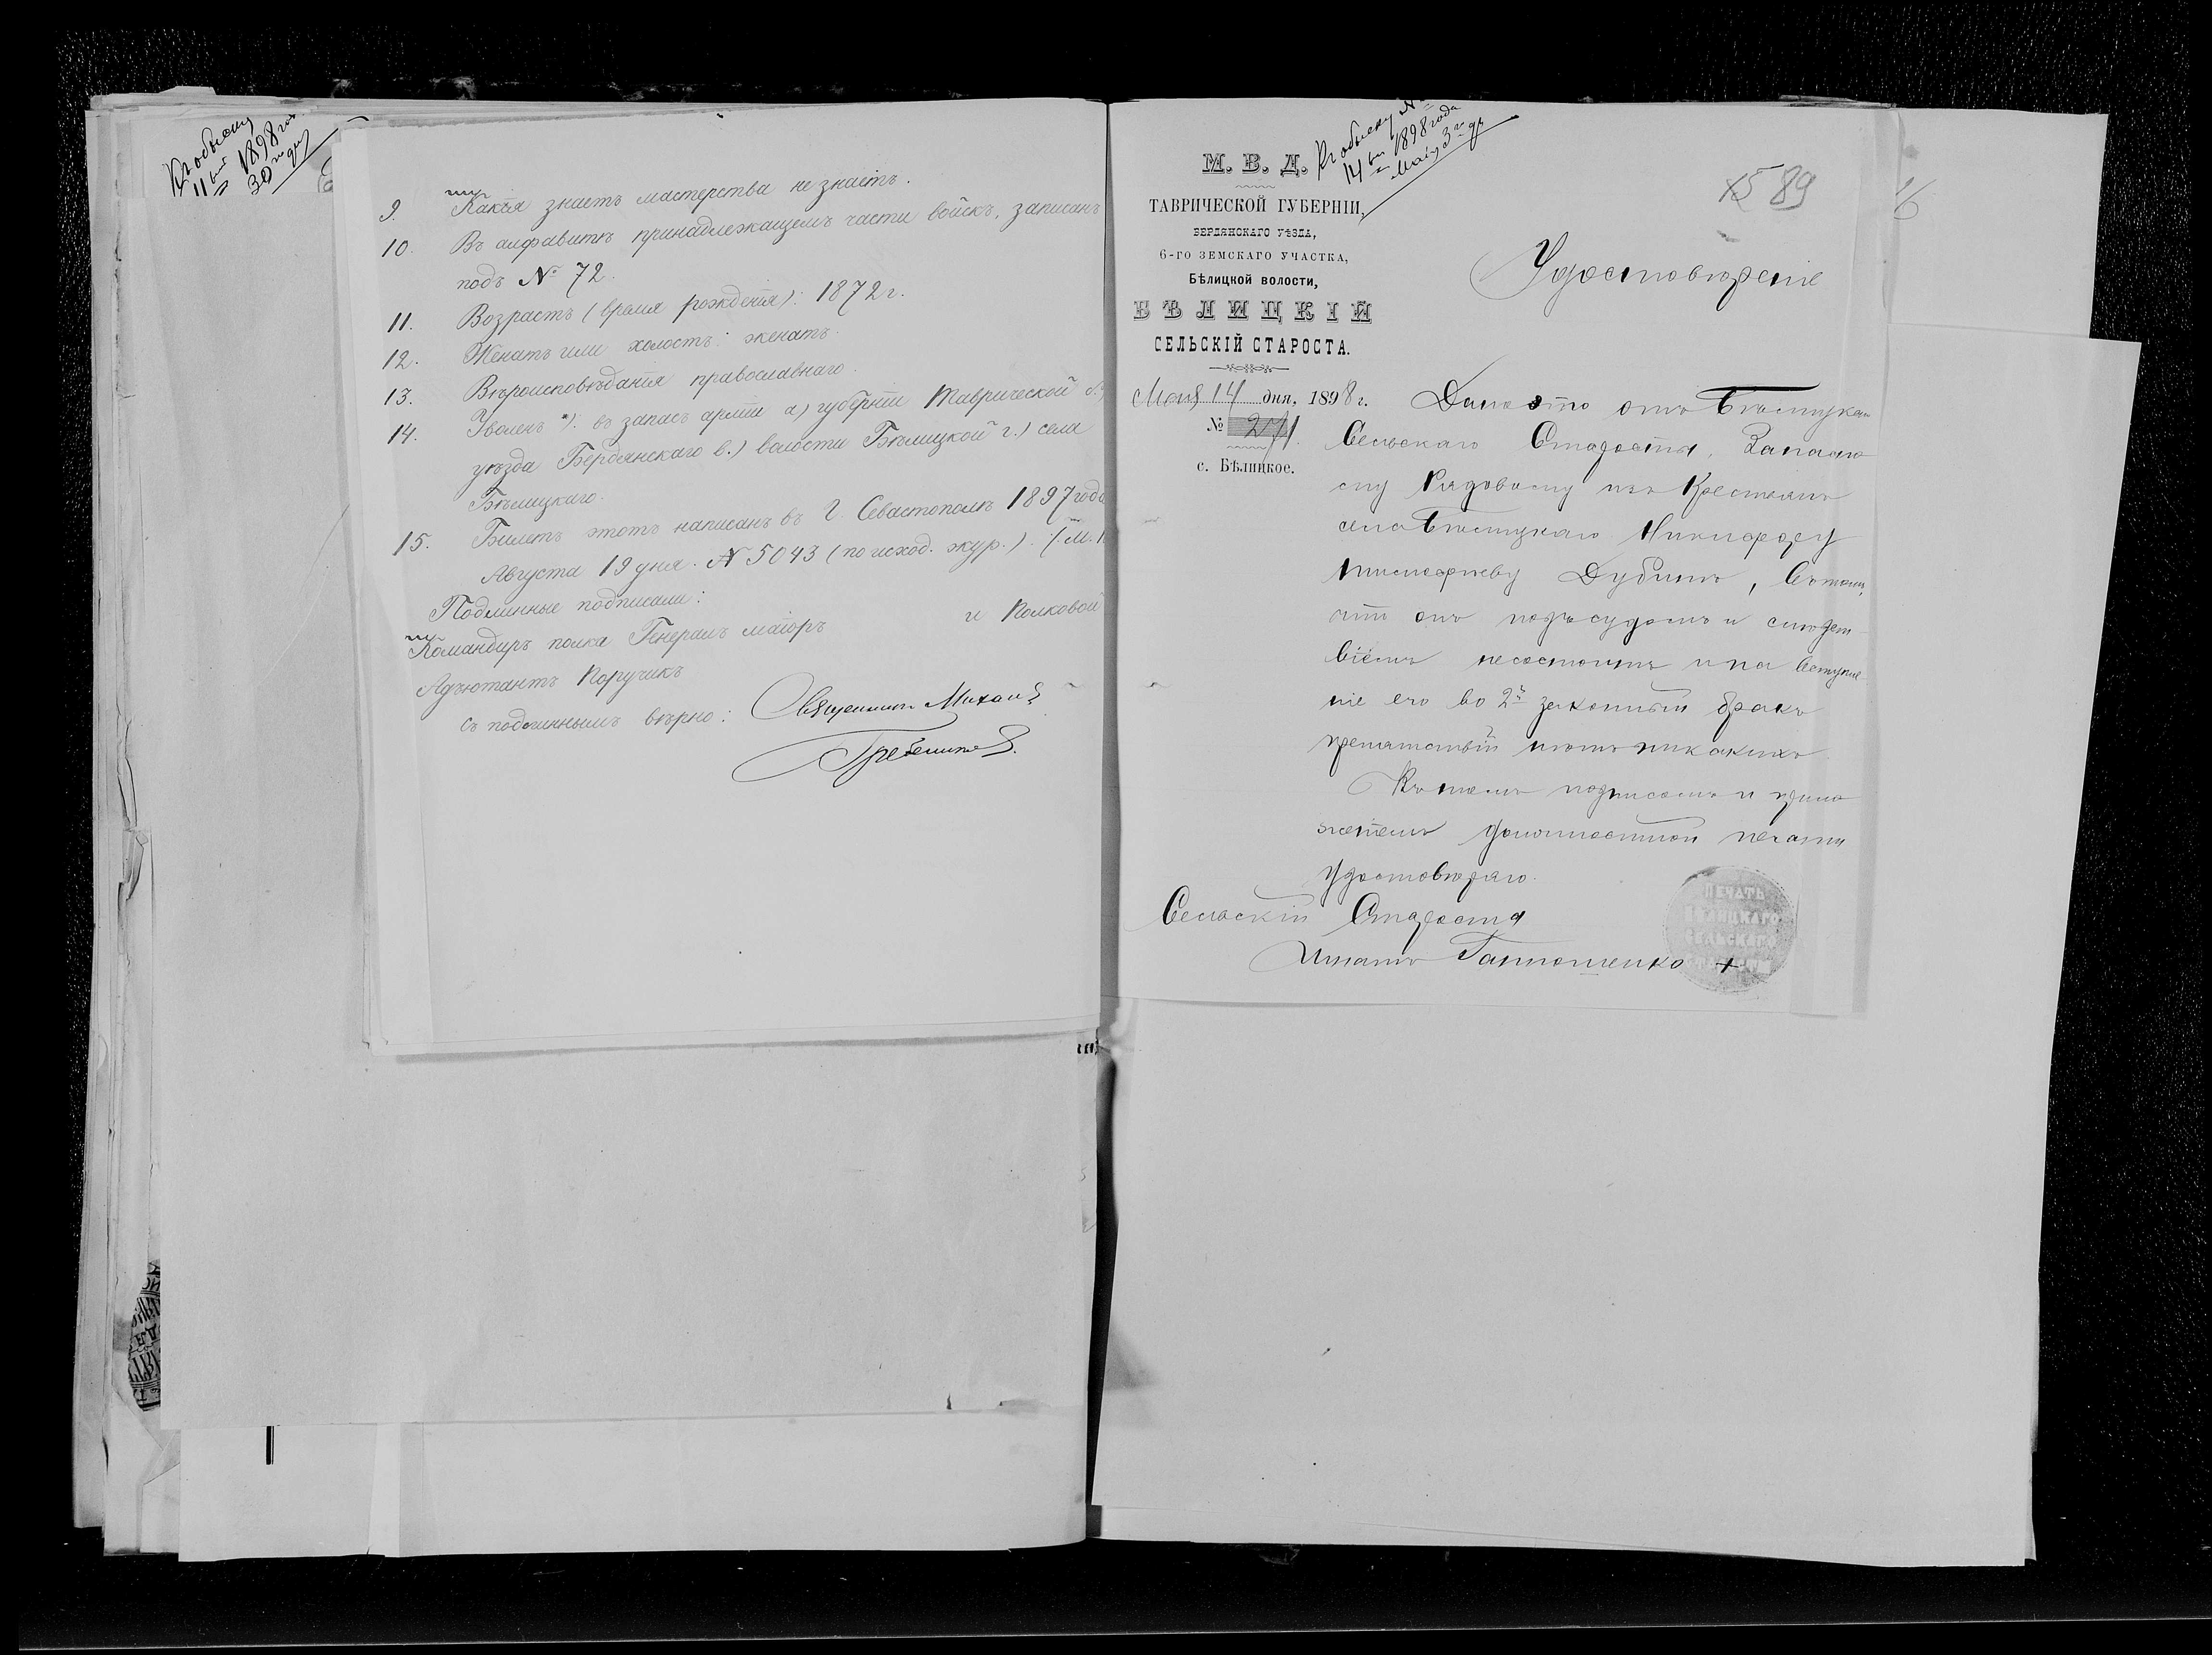 Къ обыску
11 1898 год
30 дня
9. Какія знаетъ мастерства не знаетъ.
10. Въ алфавитѣ принадлежащемъ части войскъ, записанъ
подъ № 72.
11. Возрастъ (время рожденія): 1872 г.
12. Женатъ или холостъ: женатъ.
13. Вѣроисповѣданія православнаго.
14. Уволенъ *): въ запасъ арміи а) губерніи Таврической б.)
уѣзда Бердянскаго в.) волости Бѣлицкой г.) села
Бѣлицкаго.
15. Билетъ этотъ написанъ въ г. Севастополѣ 1897 года
Августа 19 дня. № 5043 (по исход. жур.). (М.
Подлинные подписали:
Командиръ полка Генералъ маіоръ и Полковой
Адъютантъ Поручикъ
Съ подлиннымъ вѣрно: Священникъ Михаилъ
Гребенниковъ.
Къ обыску №
14 1898 года
Маія 3 дн
М. В. Д.
ТАВРИЧЕСКОЙ ГУБЕРНІИ,
БЕРДЯНСКАГО УѢЗДА,
6-ГО ЗЕМСКАГО УЧАСТКА,
Бѣлицкой волости,
БѢЛИЦКІЙ
СЕЛЬСКІЙ СТАРОСТА.
Мая 14 дня, 1898 г.
№ 271.
с. Бѣлицкое.
15 89
Удостовѣреніе
Дано это отъ Бѣлицкаго
Сельскаго Старосты, Запасно
му Рядовому изъ Крестьянъ
села Бѣлицкаго Никифору
Дубинѣ, Въ томъ,
что онъ подъ судомъ и слѣдст
віемъ несостоитъ и на вступле
ніе его во 2й законный бракъ
препятствій нѣтъ никакихъ
Въ чемъ подписомъ и прило
женіемъ должностной печати
Удостовѣряю.
Сельскій Староста
Игнатъ +
ПЕЧАТЬ
БѢЛИЦКАГО
СЕЛЬСКАГО
СТАРОСТЫ